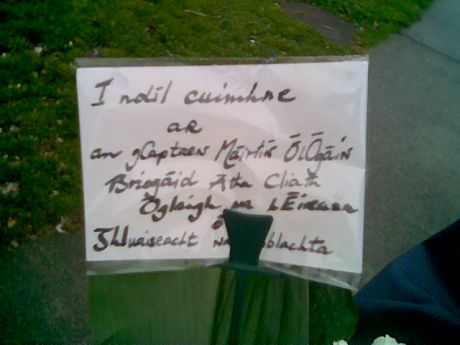 I ndíl cuimhne
ar
an gCaptaen Máirtín Ó LÓgáin
Briogáid Átha Cliath
Óglaigh na hÉireann
Ghluaiseacht na blachta